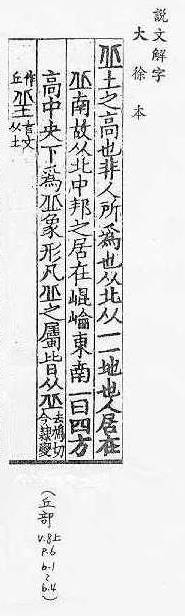 說文解字
大徐本
丠土之高也非人所爲也从北从一一地也人居在
丠南故从北中邦之居在崐崘東南一曰四方
高中央下爲丠象形凡丠之屬皆从丠去鳩切今隷變
作丘𡊣古文从土
(丘部
v.8上
p.6
b.1
~
b.4)